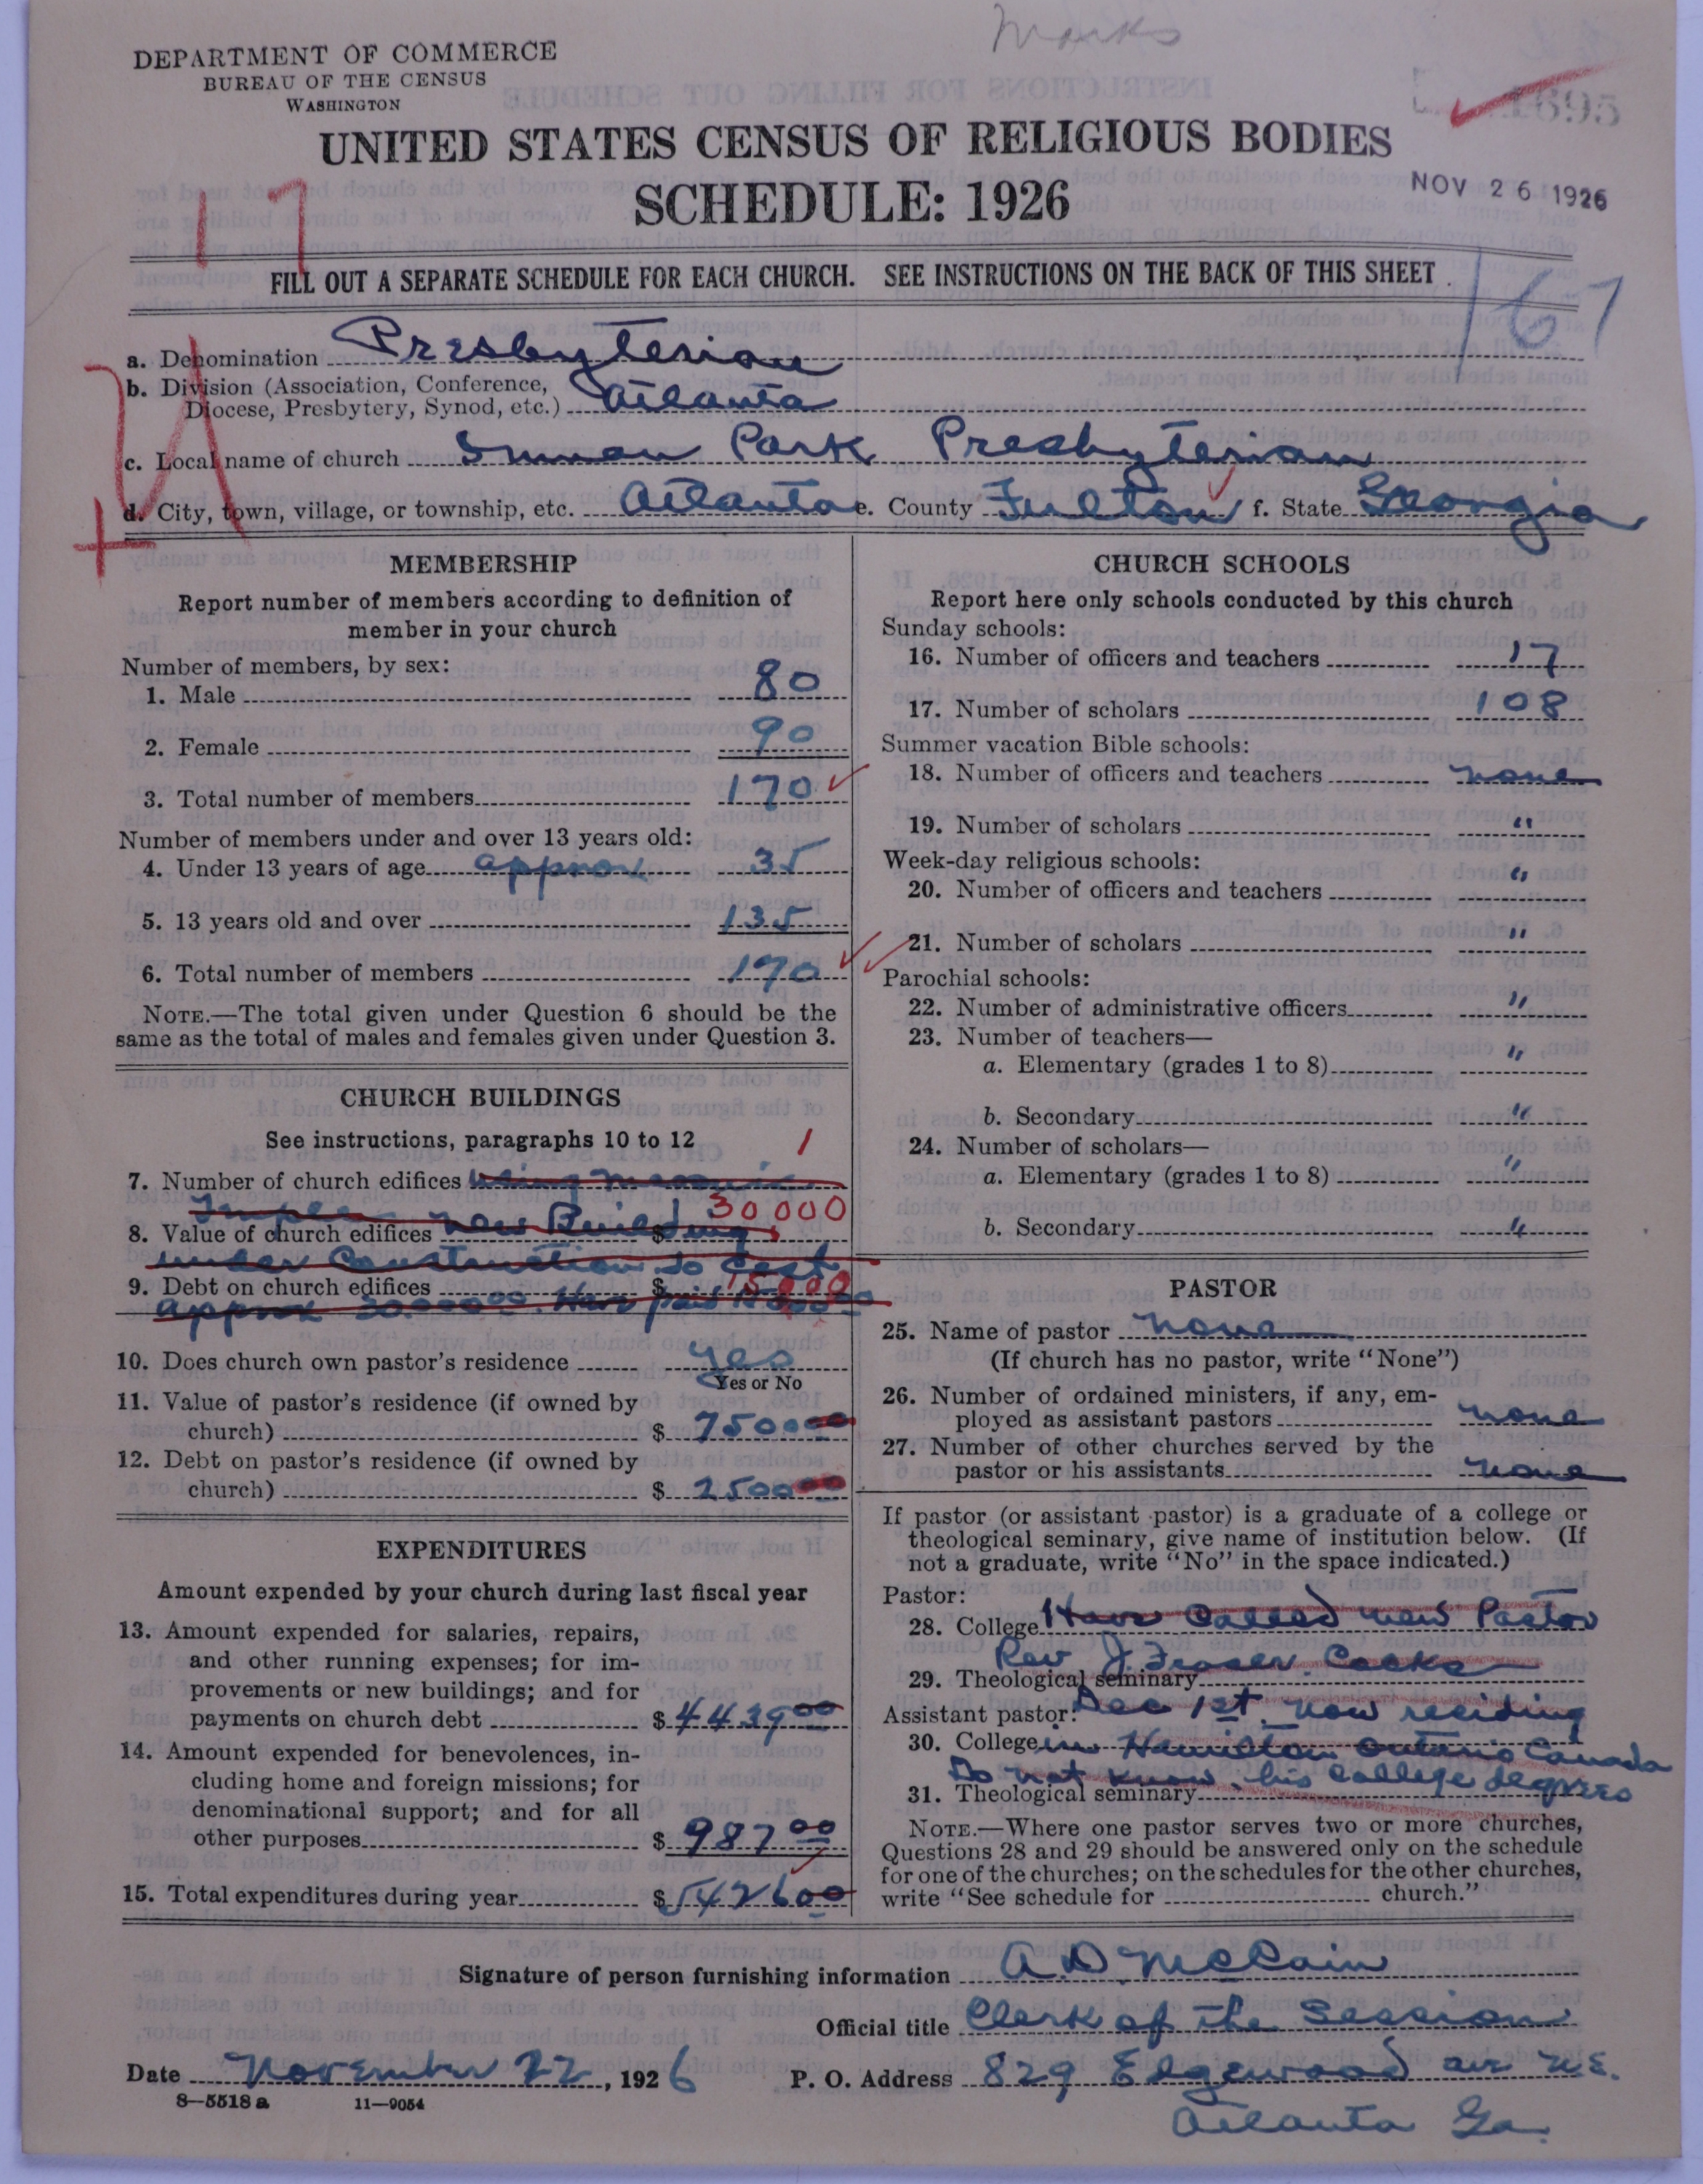 Marks
DEPARTMENT OF COMMERCE
BUREAU OF THE CENSUS
WASHINGTON
1695
UNITED STATES CENSUS OF RELIGIOUS BODIES
SCHEDULE: 1926
NOV 26 1926
17
FILL OUT A SEPARATE SCHEDULE FOR EACH CHURCH. SEE INSTRUCTIONS ON THE BACK OF THIS SHEET
167
a. Denomination Presbyterian
b. Division (Association, Conference,
Diocese, Presbytery, Synod, etc.) Atlanta
c. Local name of church Inman Park Presbyterian
d. City, town, village, or township, etc. Atlanta e. County Fulton f. State Georgia
MEMBERSHIP
Report number of members according to definition of
member in your church
Number of members, by sex:
1. Male 80
2. Female 90
3. Total number of members 170
Number of members under and over 13 years old:
4. Under 13 years of age approx 35
5. 13 years old and over 135
6. Total number of members 170
NOTE.—The total given under Question 6 should be the
same as the total of males and females given under Question 3.
CHURCH BUILDINGS
See instructions, paragraphs 10 to 12
1
7. Number of church edifices using Masonic
Temple 30000
8. Value of church edifices new Building $
under Construction to cost
9. Debt on church edifices $ 15000
approx 30.000.00. Have paid 15000.00
10. Does church own pastor's residence yes
Yes or No
11. Value of pastor's residence (if owned by
church) $ 7500.00
12. Debt on pastor's residence (if owned by
church) $ 2500.00
EXPENDITURES
Amount expended by your church during last fiscal year
13. Amount expended for salaries, repairs,
and other running expenses; for im-
provements or new buildings; and for
payments on church debt $ 4439 00
14. Amount expended for benevolences, in-
cluding home and foreign missions; for
denominational support; and for all
other purposes $ 987 00
15. Total expenditures during year $ 5426 00
CHURCH SCHOOLS
Report here only schools conducted by this church
Sunday schools:
16. Number of officers and teachers 17
17. Number of scholars 108
Summer vacation Bible schools:
18. Number of officers and teachers none
19. Number of scholars "
Week-day religious schools:
20. Number of officers and teachers "
21. Number of scholars "
Parochial schools:
22. Number of administrative officers "
23. Number of teachers—
a. Elementary (grades 1 to 8) "
b. Secondary "
24. Number of scholars—
a. Elementary (grades 1 to 8) "
b. Secondary "
PASTOR
25. Name of pastor None
(If church has no pastor, write "None")
26. Number of ordained ministers, if any, em-
ployed as assistant pastors none
27. Number of other churches served by the
pastor or his assistants none
If pastor (or assistant pastor) is a graduate of a college or
theological seminary, give name of institution below. (If
not a graduate, write "No" in the space indicated.)
Pastor:
28. College Have Called new Pastor
Rev J. Fraser Cocks
29. Theological seminary
Assistant pastor: Dec 1st. now residing
30. College in Hamilton Ontario Canada
Do not know his college degrees
31. Theological seminary
NOTE.—Where one pastor serves two or more churches,
Questions 28 and 29 should be answered only on the schedule
for one of the churches; on the schedules for the other churches,
write "See schedule for church."
Signature of person furnishing information A. D. McCain
Official title Clerk of the Session
Date November 22, 1926 P. O. Address 829 Edgewood ave N.E.
8—5518 a 11—9054
Atlanta Ga.